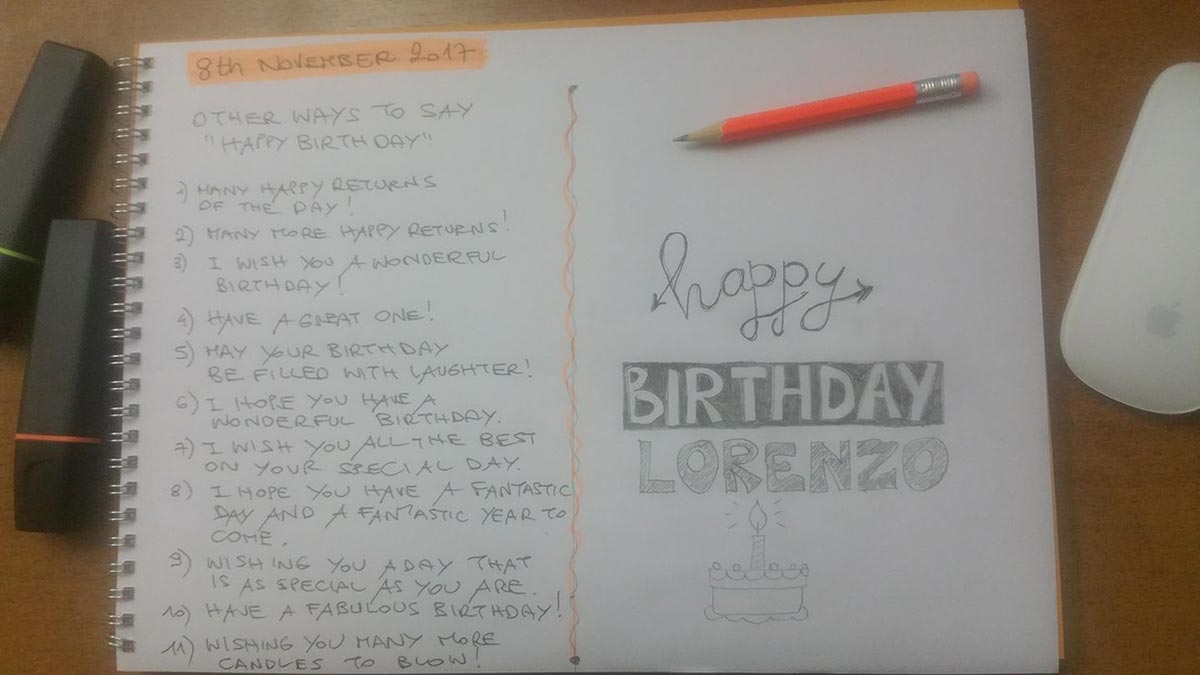 8th NOVEMBER 2017
OTHER WAYS TO SAY
"HAPPY BIRTHDAY"
1) MANY HAPPY RETURNS
OF THE DAY!
2) MANY MORE HAPPY RETURNS!
3) I WISH YOU A WONDERFUL
BIRTHDAY!
4) HAVE A GREAT ONE!
5) MAY YOUR BIRTHDAY
BE FILLED WITH LAUGHTER!
6) I HOPE YOU HAVE A
WONDERFUL BIRTHDAY.
7) I WISH YOU ALL THE BEST
ON YOUR SPECIAL DAY.
8) I HOPE YOU HAVE A FANTASTIC
DAY AND A FANTASTIC YEAR TO
COME.
9) WISHING YOU A DAY THAT
IS AS SPECIAL AS YOU ARE.
10) HAVE A FABULOUS BIRTHDAY!
11) WISHING YOU MANY MORE
CANDLES TO BLOW!
happy
BIRTHDAY
LORENZO